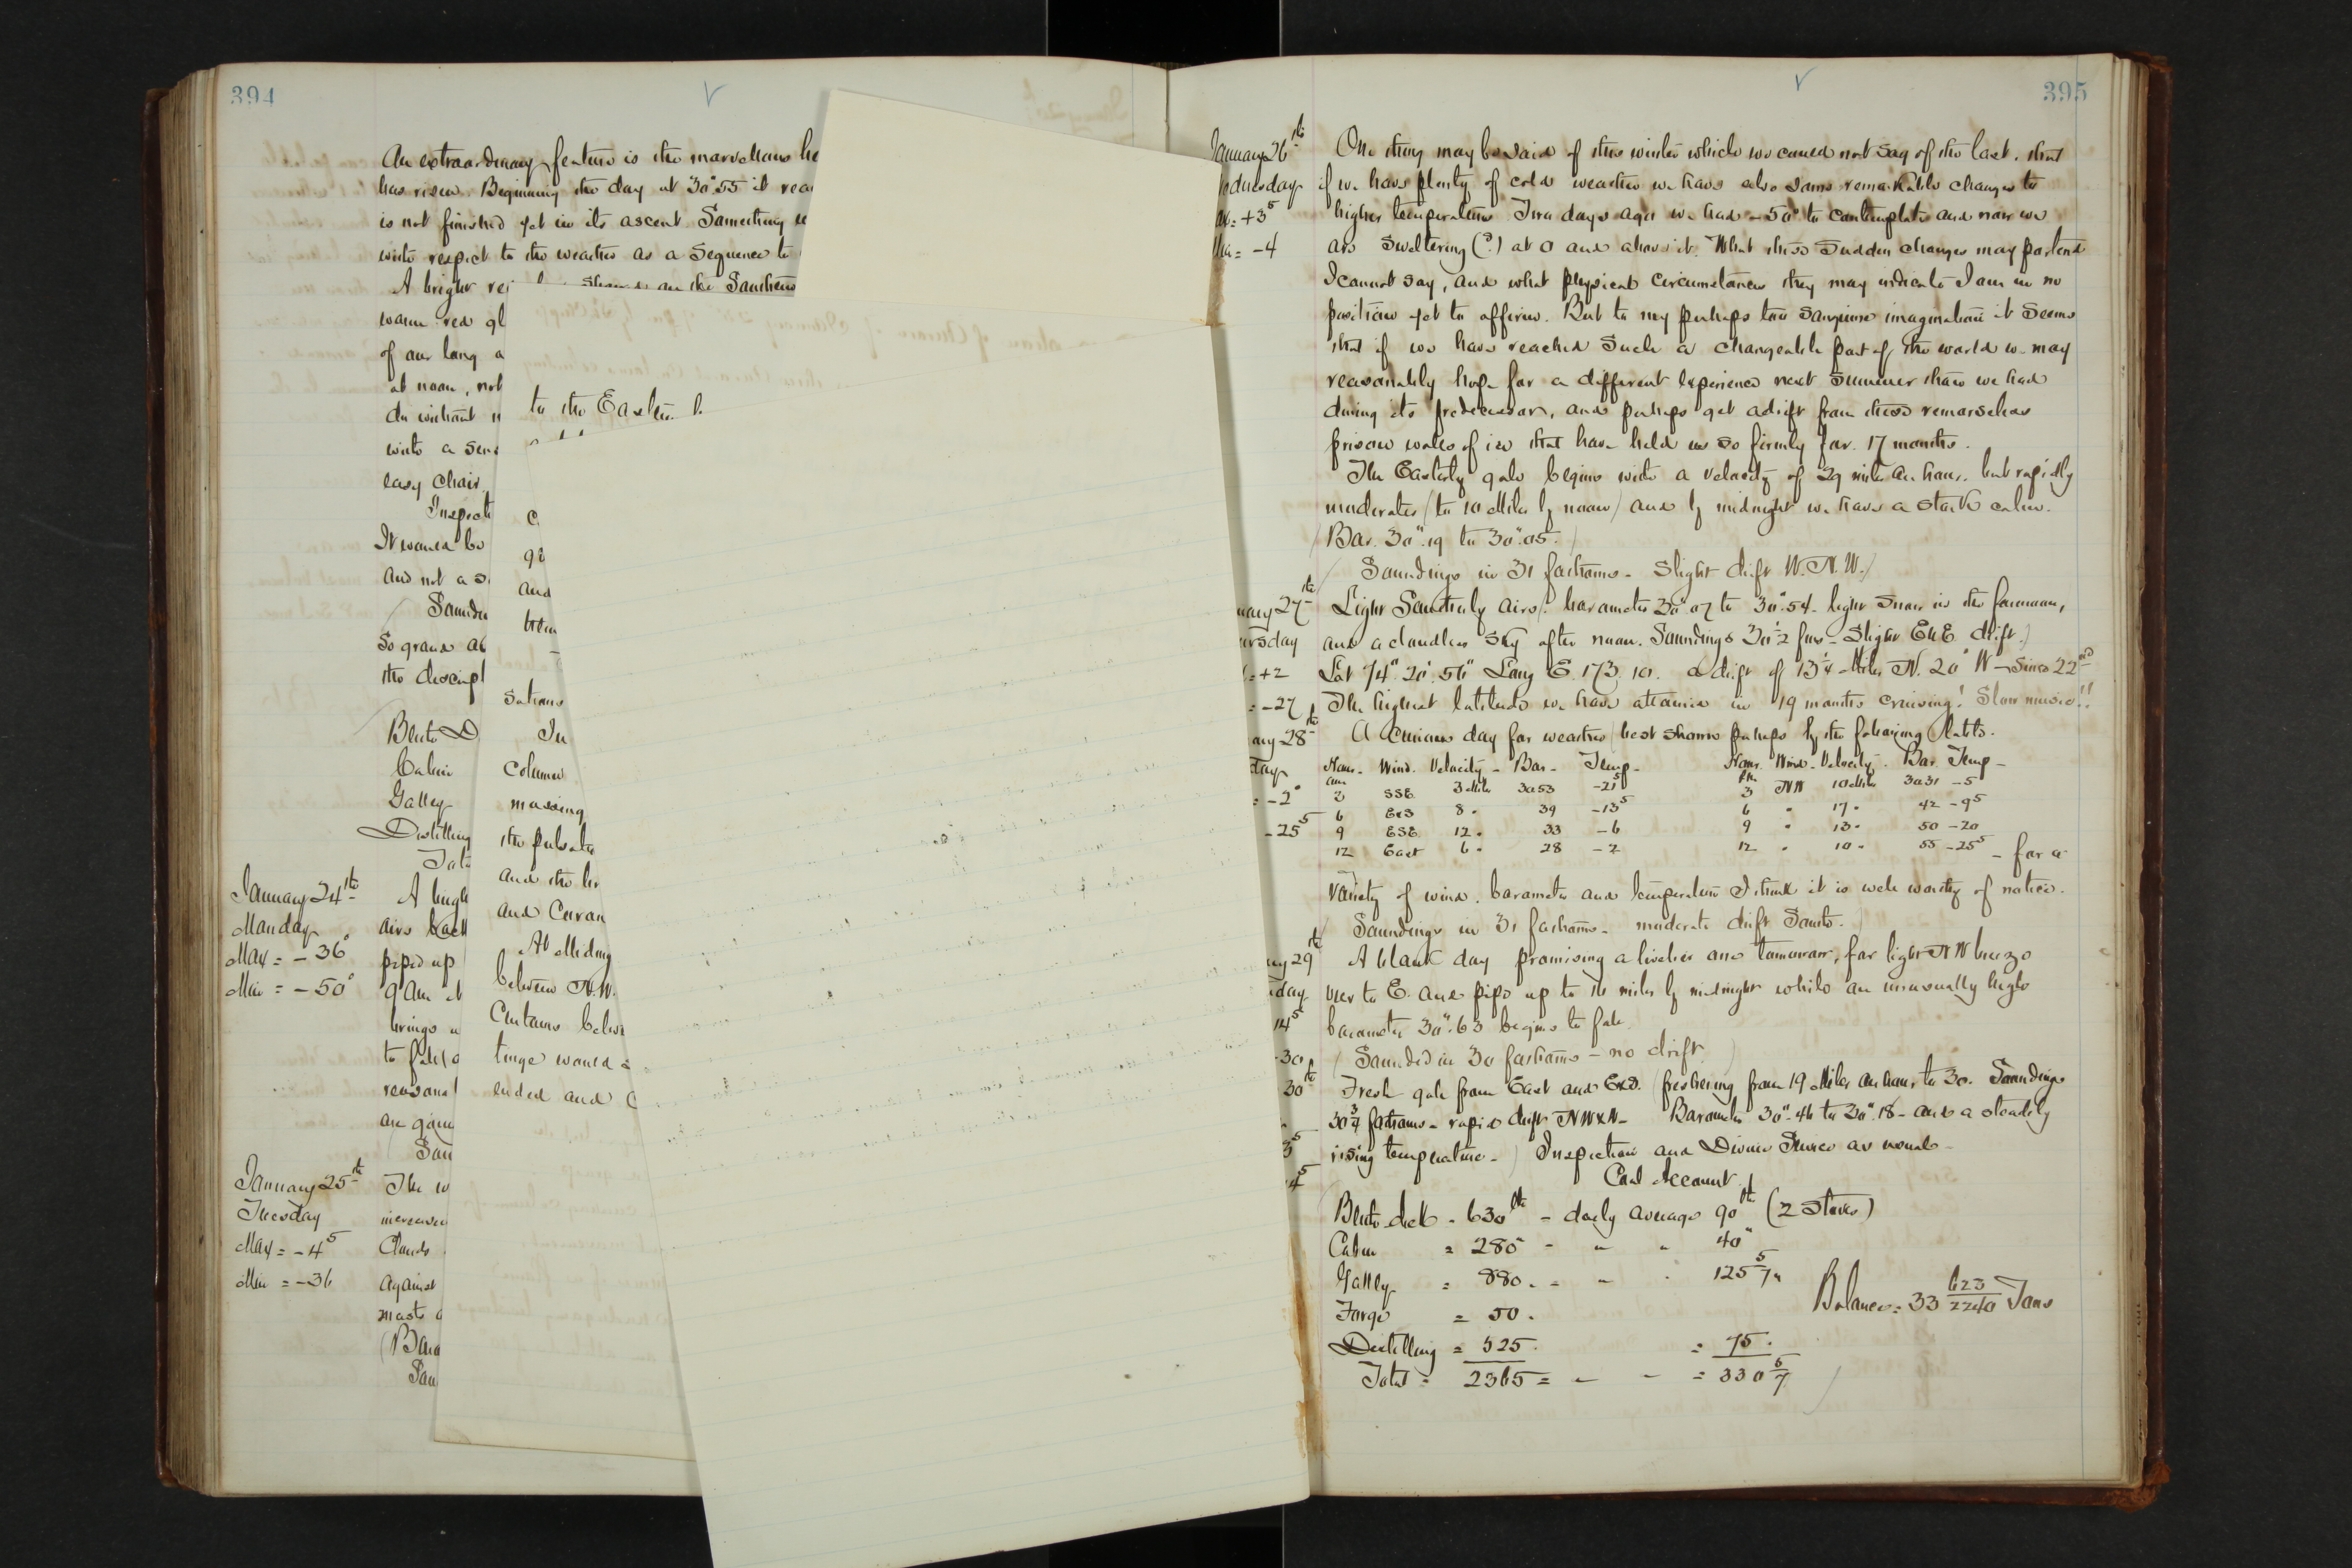 394
An extraordinary feature is the marvellous he
has risen. Beginning the day at 30".55 it rea
is not finished yet in its ascent. Something
with respect to the weather as a sequence to
A bright on the Southern
warm red gl
of our long a
at noon, not
do without
with a sens
easy chair
Inspecti
It would be
and not a s
Soundin
So grand as
the descript
Berth D
Cabin
Galley
Distilling
Tota
January 24th
Monday
Max = -36°
Min = -50°
A brigh
airs back
piped up
9 Am
brings
to fall
reasona
are goin
Soun
January 25th
Tuesday
Max = -4 5
Min = -36
The w
increased
Clouds
against
mast
(Baro
Soun
to the Eastern
and
In
column
moving
the pulsatio
and the
and Curran
At Midnig
between N.W.
Curtains below
tinge would
ended and
395
January 26th
ednesday
= +3 5
= -4
One thing may be said of this winter which we could not say of the last. that
if we have plenty of cold weather we have also some remarkable changes to
higher temperatures. Two days ago we had -50° to contemplate and now we
are sweltering (?) at 0 and above it. What these sudden changes may portend
I cannot say, and what physical circumstances they may indicate I am in no
position yet to affirm. But to my perhaps too sanguine imagination it seems
that if we have reached such a changeable part of the world we may
reasonably hope for a different experience next summer than we had
during its predecessor, and perhaps get adrift from these remorseless
prison walls of ice that have held us so firmly for 17 months.
The Easterly gale begins with a velocity of 29 miles an hour, but rapidly
moderates (to 10 Miles by noon) and by midnight we have a stark calm.
(Bar. 30".19 to 30".05.)
(Soundings in 31 fathoms - Slight drift W.N.W.)
uary 27th
ursday
= +2
= -27
Light Southerly airs, barometer 30".07 to 30".54. light snow in the forenoon,
and a cloudless sky after noon. Soundings 30 1/2 fms - Slight drift.)
Lat 74° 20' 56" Long E. 173. 10. a drift of 13 1/4 Miles N. 20° W since 22nd
The highest latitude we have attained in 19 months cruising! Slow music!!
ary 28th
day
= -2°
-25 5
A Curious day for weather (best shown perhaps by the following table.
Hour - Wind. Velocity - Bar - Temp - Hour. Wind - Velocity. Bar. Temp -
am pm
3 SSE 3 Miles 3053 -21 5 3 NW 10 Miles 3031 -5
6 ExS 8 " 39 -13 5 6 " 17 " 42 -9 5
9 ESE 12 " 33 -6 9 " 13 " 50 -20
12 East 6 " 28 -2 12 " 10 " 55 -25 5 - for a
variety of wind, barometer and temperature I think it is well worthy of notice.
(Soundings in 31 fathoms - moderate drift South.)
ry 29th
day
14 5
-30
A blank day promising a livelier one tomorrow, for light NW breeze
veer to E. and pipe up to 16 miles by midnight while an unusually high
barometer 30".63 begins to fall.
(Sounded in 30 fathoms - no drift)
30th
5
4 5
Fresh gale from East and ExS. (freshening from 19 Miles an hour to 30. Soundings
30 3/4 fathoms - rapid drift NWxN - Barometer 30".46 to 30".18 - and a steadily
rising temperature -) Inspection and Divine Service as usual -
Coal Account
Berth deck - 630 lbs - daily average 90 lbs (2 stoves)
Cabin = 280 - " " 40 "
Galley = 880. - " " 125 5/7 "
Forge = 50.
Balance = 33 623/2240 Tons
Distilling = 525. = 75.
Total = 2365 = - - = 330 5/7